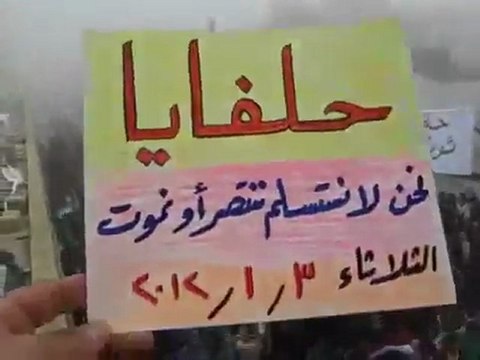 حلفايا
نحن لا نستسلم ننتصر أو نموت
الثلاثاء ٣ / ١ / ٢٠١٢